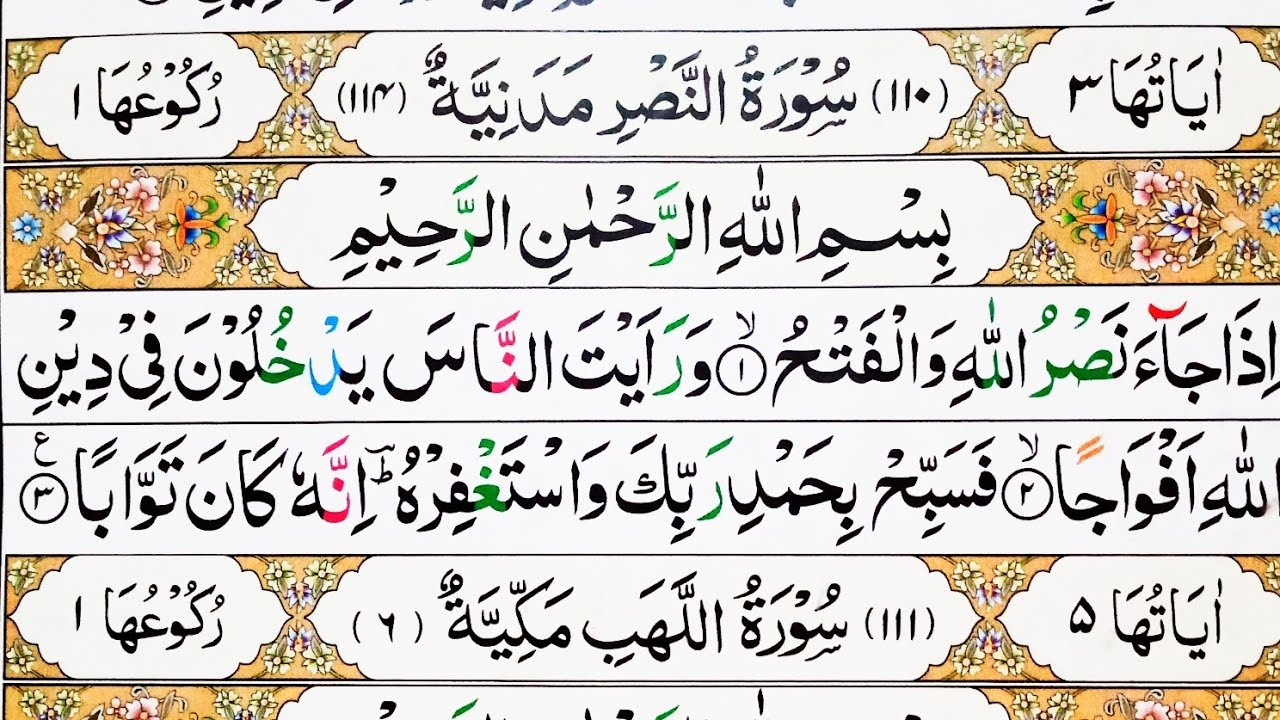 اٰيَاتُهَا ٣ (١١٠) سُوْرَةُ النَّصْرِ مَدَنِيَّةٌ (١١٤) رُكُوْعُهَا ١
بِسْمِ اللّٰهِ الرَّحْمٰنِ الرَّحِيْمِ
اِذَا جَآءَ نَصْرُ اللّٰهِ وَالْفَتْحُ ۙ﴿١﴾ وَرَاَيْتَ النَّاسَ يَدْخُلُوْنَ فِيْ دِيْنِ
اللّٰهِ اَفْوَاجًا ۙ﴿٢﴾ فَسَبِّحْ بِحَمْدِ رَبِّكَ وَاسْتَغْفِرْهُ ؕ اِنَّهٗ كَانَ تَوَّابًا ﴿٣﴾ ع
اٰيَاتُهَا ٥ (١١١) سُوْرَةُ اللَّهَبِ مَكِّيَّةٌ (٦) رُكُوْعُهَا ١